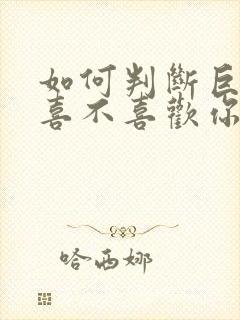 如何判斷巨
喜不喜歡你
哈西娜